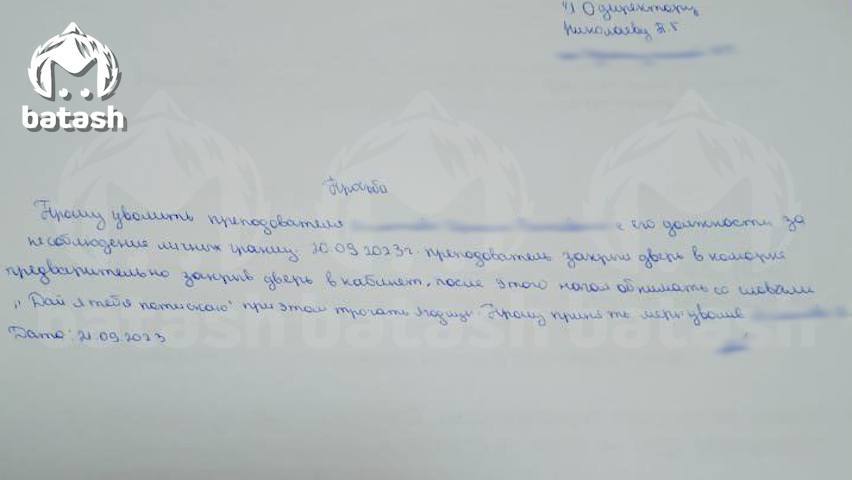 И О директору
Николаеву П. Г
batash
Просьба
Прошу уволить преподователя с его должности за
несоблюдение личных границ. 20.09.2023г. преподователь закрыл дверь в коморке
предварительно закрыв дверь в кабинет, после этого начал обнимать со словами
„Дай я тебя потискаю" при этом трогать ягодицы. Прошу принять меры
Дата: 21.09.2023
batash batash batash